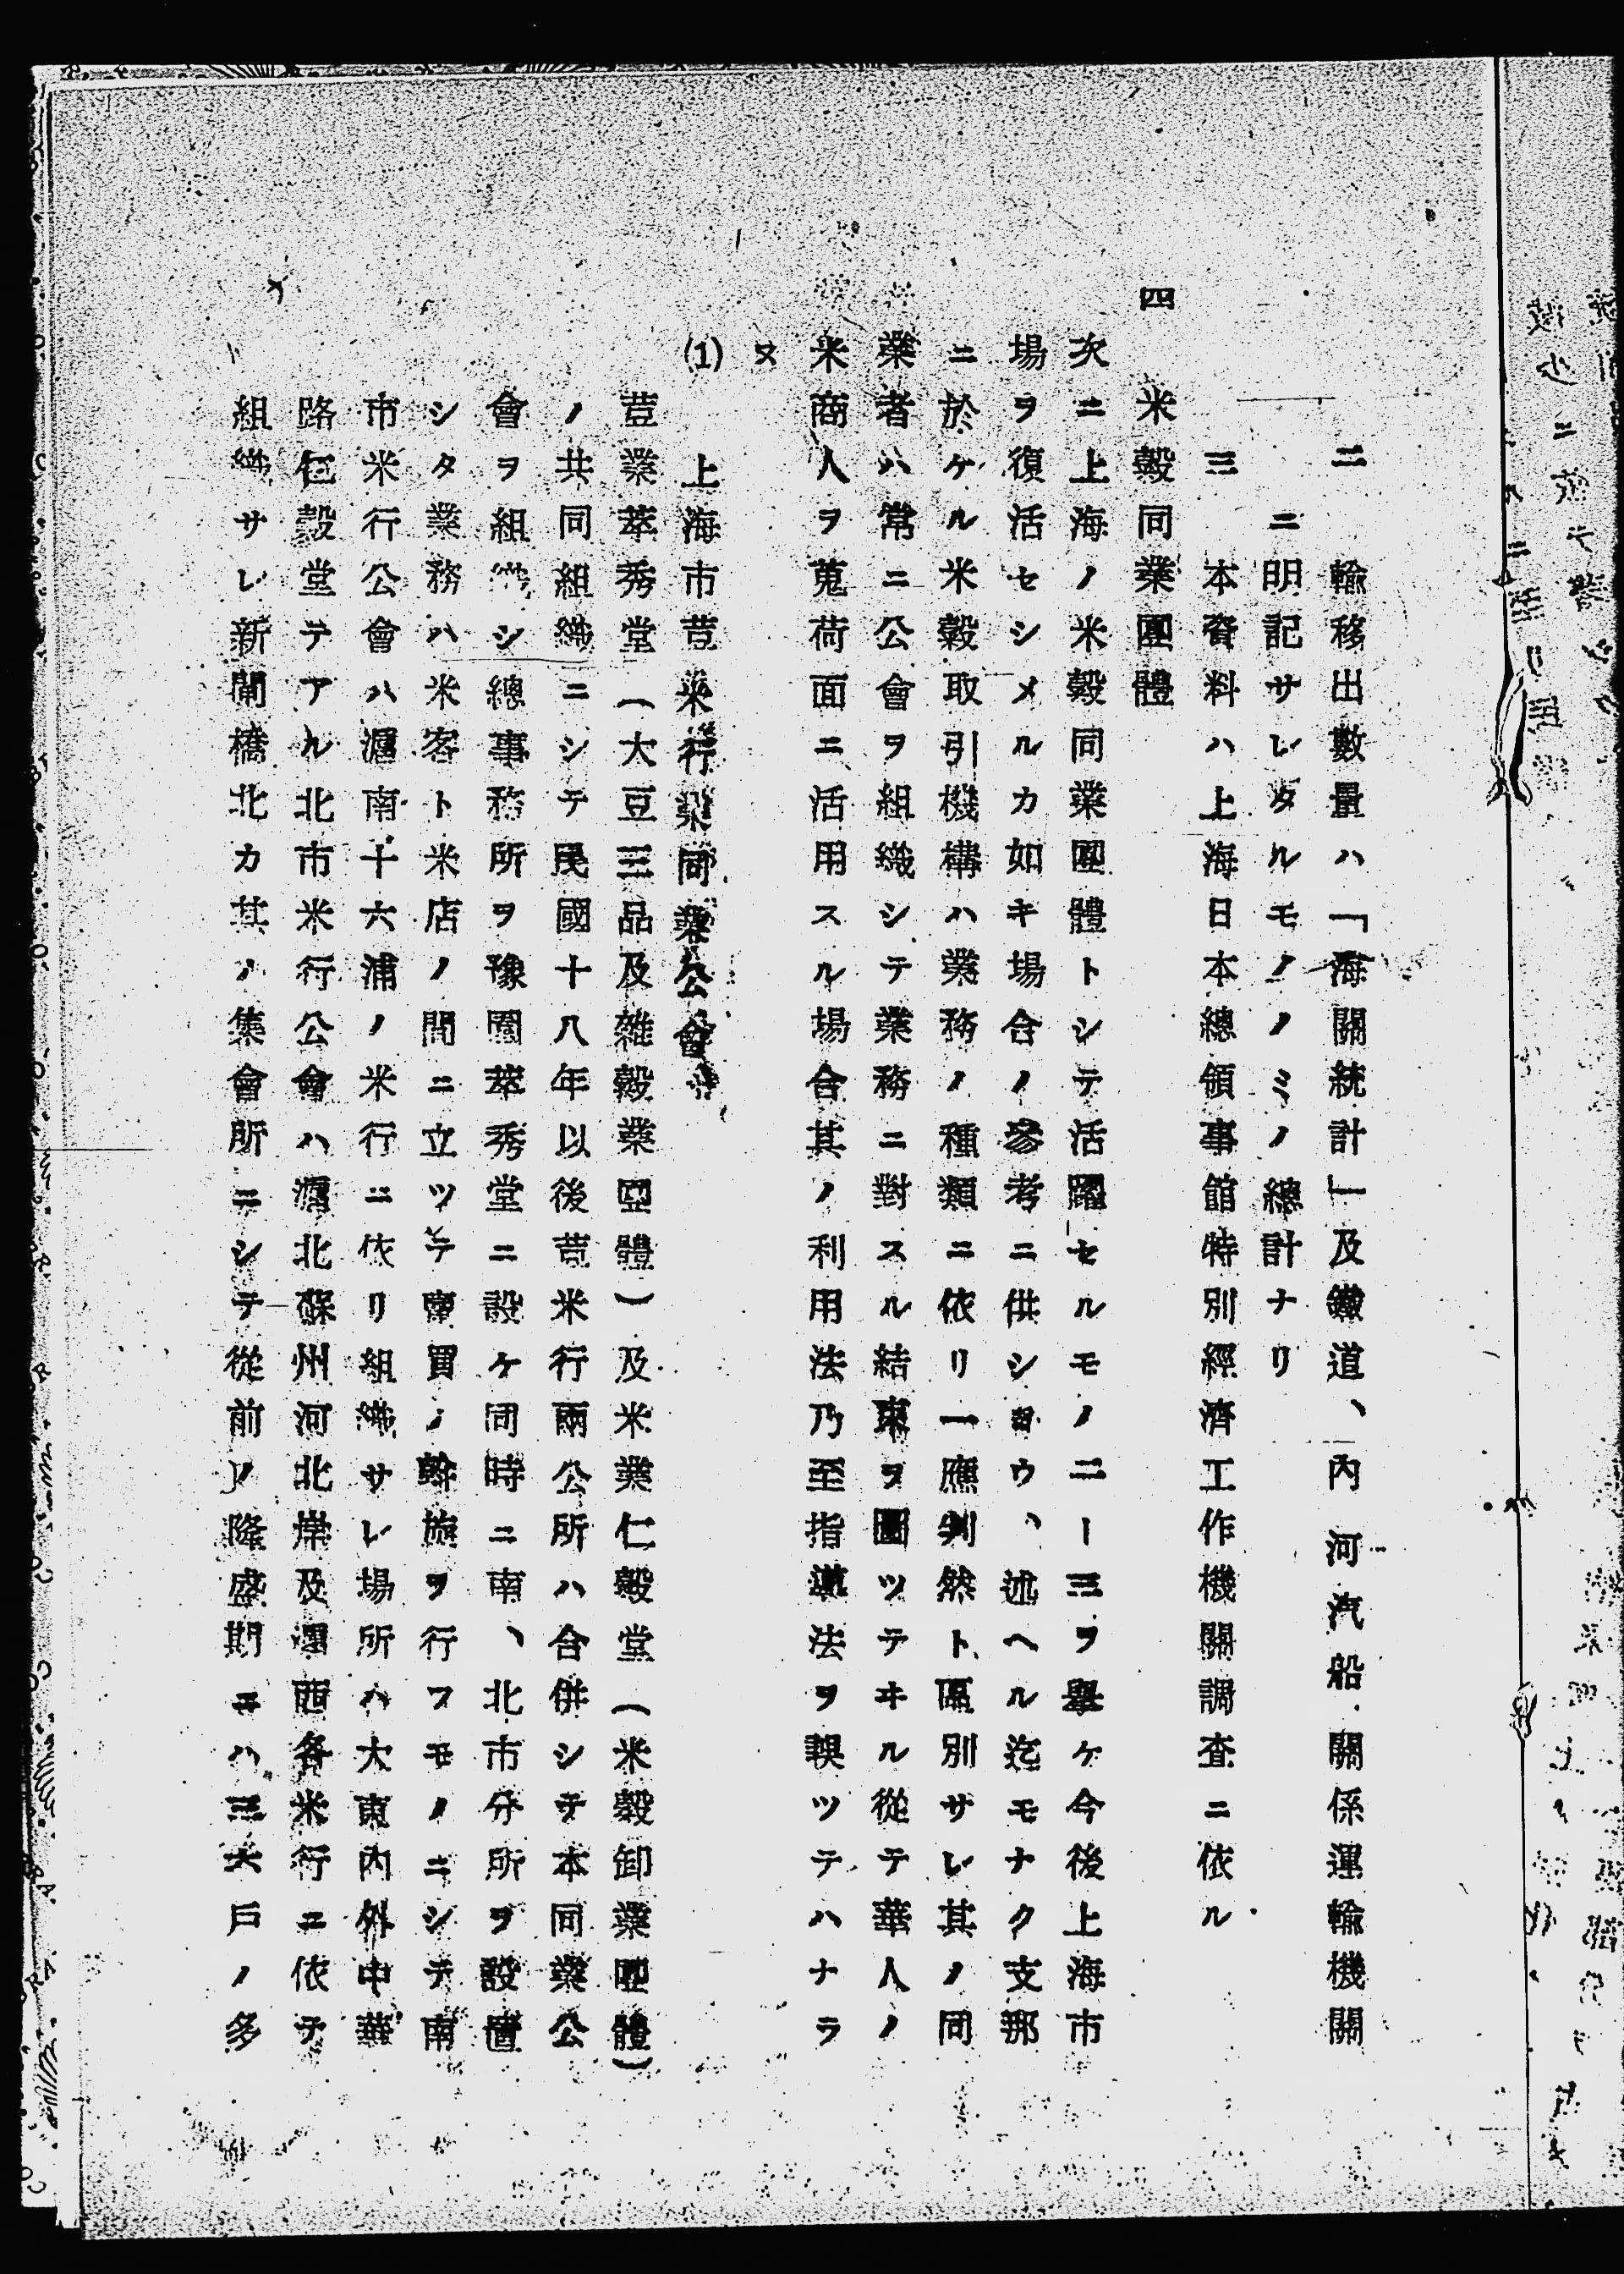 二　輸移出數量ハ「海關統計」及鐵道、內河汽船關係運輸機關
ニ明記サレタルモノノミノ總計ナリ
三　本資料ハ上海日本總領事館特別經濟工作機關調查ニ依ル
四　米穀同業團體
次ニ上海ノ米穀同業團體トシテ活躍セルモノノ二ー三ヲ擧ケ今後上海市
場ヲ復活セシメルカ如キ場合ノ參考ニ供シヨウ、述ヘル迄モナク支那
ニ於ケル米穀取引機構ハ業務ノ種類ニ依リ一應判然ト區別サレ其ノ同
業者ハ常ニ公會ヲ組織シテ業務ニ對スル結束ヲ圖ツテヰル從テ華人ノ
米商人ヲ蒐荷面ニ活用スル場合其ノ利用法乃至指導法ヲ誤ツテハナラ
ヌ
(1)　上海市荳米行業同業公會
荳業萃秀堂（大豆三品及雜穀業團體）及米業仁穀堂（米穀卸業團體）
ノ共同組織ニシテ民國十八年以後荳米行兩公所ハ合併シテ本同業公
會ヲ組織シ總事務所ヲ豫園萃秀堂ニ設ケ同時ニ南、北市分所ヲ設置
シタ業務ハ米客ト米店ノ間ニ立ツテ賣買ノ斡旋ヲ行フモノニシテ南
市米行公會ハ滬南十六浦ノ米行ニ依リ組織サレ場所ハ大東內外中華
路仁穀堂テアル北市米行公會ハ滬北蘇州河北岸及滬西各米行ニ依テ
組織サレ新閘橋北カ其ノ集會所ニシテ從前ノ隆盛期ニハ三大戶ノ多